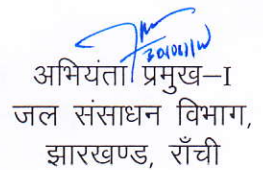 अभियंता प्रमुख–I
जल संसाधन विभाग,
झारखण्ड, राँची